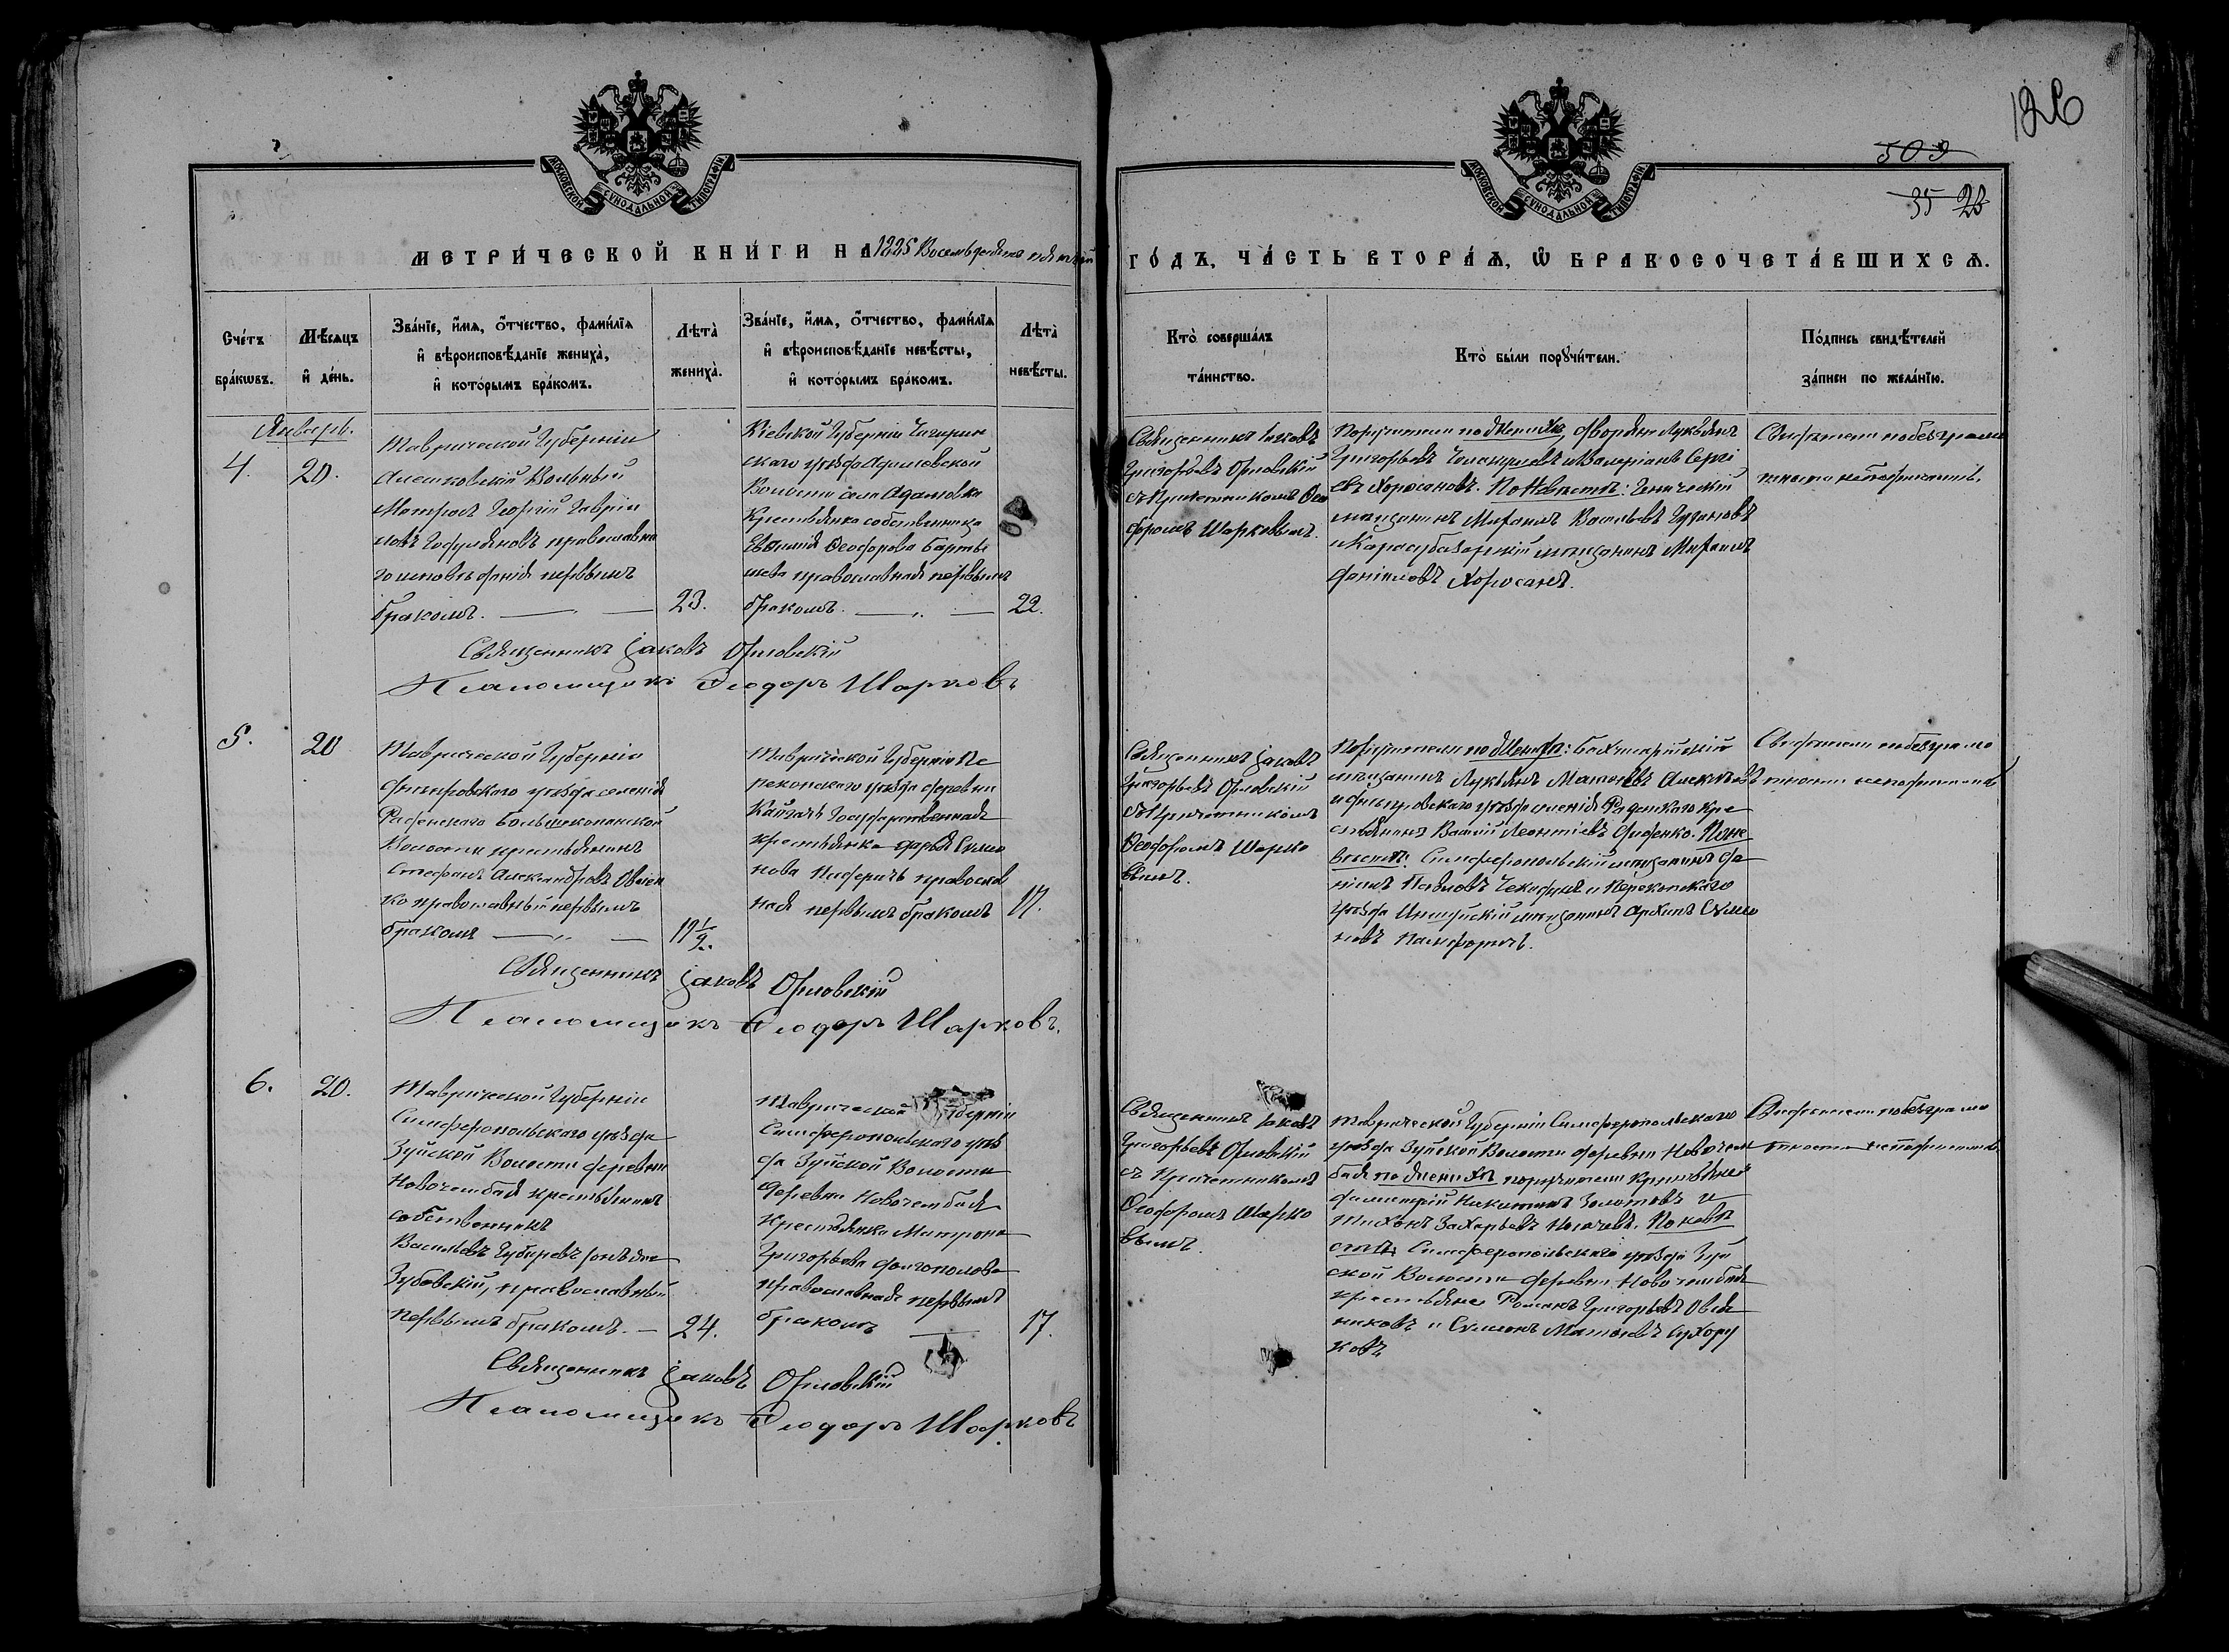 126
509
35 23
МОСКОВСКОЙ СѴНОДАЛЬНОЙ ТИПОГРАФІИ
МОСКОВСКОЙ СѴНОДАЛЬНОЙ ТИПОГРАФІИ
МЕТРИ́ЧЕСКОЙ КНИ́ГИ НА 1885 Восемьдесятъ пятый
ГО́ДЪ, ЧА́СТЬ ВТОРА́Ѧ, Ѽ БРАКОСОЧЕТА́ВШИХСѦ.
Сче́тъ
бра́кѡвъ.
Мѣ́сѧцъ
и҆ де́нь.
Зва́нїе, и҆́мѧ, ѻ҆́тчество, фами́лїѧ
и҆ вѣроисповѣ́данїе жениха̀,
и҆ кото́рымъ бра́комъ.
Лѣта̀
жениха̀.
Зва́нїе, и҆́мѧ, ѻ҆́тчество, фами́лїѧ
и҆ вѣроисповѣ́данїе невѣ́сты,
и҆ кото́рымъ бра́комъ.
Лѣта̀
невѣ́сты.
Кто̀ соверша́лъ
та́инство.
Кто̀ бы́ли порꙋчи́тели.
По́дпись свидѣ́телей
за́писи по жела́нїю.
Январь.
4.
20.
Таврической Губерніи
Алешковскій Вольный
Матросъ Георгій Гаврии
ловъ православна
го исповѣданія первымъ
бракомъ. — „ —
23.
Кіевской Губерніи Чигирин
скаго уѣзда Адамовской
Волости села Адамовки
Крестьянка собственница
Евѳимія Ѳеодорова
православная первымъ
бракомъ. — „ —
22.
Священникъ Іаковъ
Григорьевъ Орловскій
съ Причетникомъ Ѳео
доромъ Шарковымъ.
Поручители по Женихѣ, дворяне Лукьянъ
Григорьевъ и Валеріанъ Сергі
евъ Хорасановъ. По Невѣстѣ: Геническій
мѣщанинъ Михаилъ Васильевъ
и Карасубазарскій мѣщанинъ Михаилъ
Даніиловъ Хорасанъ.
Свидѣтели по безграмо
тности неподписались.
Священникъ Іаковъ Орловскій
Псаломщикъ Ѳеодоръ Шарковъ
5.
20
Таврической Губерніи
Днѣпровскаго уѣзда селенія
Раденскаго Большекопанской
Волости крестьянинъ
Стефанъ Александровъ Овсіен
ко православный первымъ
бракомъ — „ —
19½.
Таврической Губерніи Пе
рекопскаго уѣзда деревни
Государственная
крестьянка Дарья Симо
нова православ
ная первымъ бракомъ
17.
Священникъ Іаковъ
Григорьевъ Орловскій
съ Причетникомъ
Ѳеодоромъ Шарко
вымъ.
Поручители по Женихѣ: Бахчисарайскій
мѣщанинъ Лукьянъ Матвѣевъ
и Днѣпровскаго уѣзда селенія Раденскаго Кре
стьянинъ Василій Леонтіевъ Диденко. По не
вѣстѣ: Симферопольскій мѣщанинъ Да
ніилъ Павловъ и Перекопскаго
уѣзда мѣщанинъ Архипъ Симо
новъ
Свидѣтели по безграмо
тности неподписались
Священникъ Іаковъ Орловскій
Псаломщикъ Ѳеодоръ Шарковъ.
6.
20.
Таврической Губерніи
Симферопольскаго уѣзда
Зуйской Волости деревни
Новочембая крестьянинъ
собственникъ
Васильевъ Губаревъ онъ же
Зубовскій, православный
первымъ бракомъ. —
24.
Таврической Губерніи
Симферопольскаго уѣз
да Зуйской Волости
деревни Новочембая
Крестьянка Матрона
Григорьева Долгополова
православная первымъ
бракомъ —
17.
Священникъ Іаковъ
Григорьевъ Орловскій
съ Причетникомъ
Ѳеодоромъ Шарко
вымъ.
Таврической Губерніи Симферопольскаго
уѣзда Зуйской Волости деревни Новочем
бая по женихѣ поручители Крестьяне
Димитрій Никитинъ Золотовъ и
Тихонъ Захарьевъ По невѣ
стѣ Симферопольскаго уѣзда Зуй
ской Волости деревни Новочембая
крестьяне Романъ Григорьевъ Овсян
никовъ и Симеонъ Матвѣевъ Сухору
ковъ
Свидѣтели по безграмо
тности неподписались
Священникъ Іаковъ Орловскій
Псаломщикъ Ѳеодоръ Шарковъ